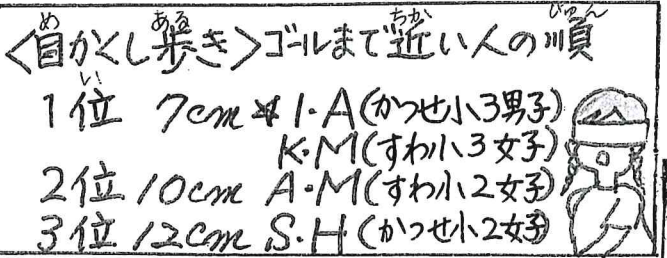 <目かくし歩き>ゴールまで近い人の順
1位 7cm * I・A(かつせ小3男子)
K・M(すわ小3女子)
2位 10cm A・M(すわ小2女子)
3位 12cm S・H(かつせ小2女子)